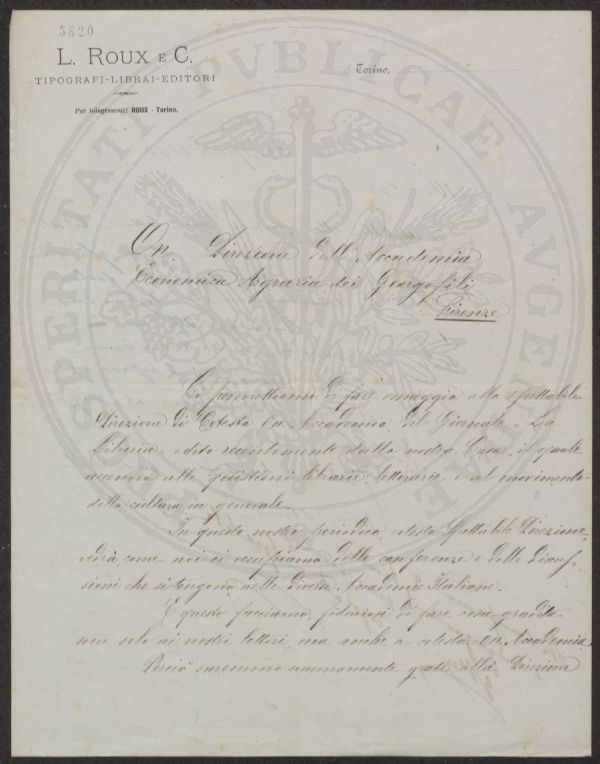 5820
L. ROUX E C.
TIPOGRAFI-LIBRAI-EDITORI
Per telegrammi: ROUX - Torino.
Torino,
PROSPERITATI PVBLICAE AVGENDAE
On. Direzione dell'Accademia
Economica Agraria dei Georgofili
Firenze
Ci permettiamo di fare omaggio alla spettabile
Direzione di Cotesta On. Accademia, del Giornale - La
Libreria, edito recentemente dalla nostra Casa, il quale
accenna alle quistioni librarie letterarie e al movimento
della cultura in generale.
In questo nostro periodico cotesta Spettabile Direzione
vedrà, come noi ci occupiamo delle conferenze e delle Discus-
sioni che si tengono nelle diverse Accademie Italiane.
E questo facciamo, fiduciosi di fare cosa gradita
non solo ai nostri lettori, ma anche a cotesta On. Accademia.
Perciò saremmo sommamente grati alla Direzione